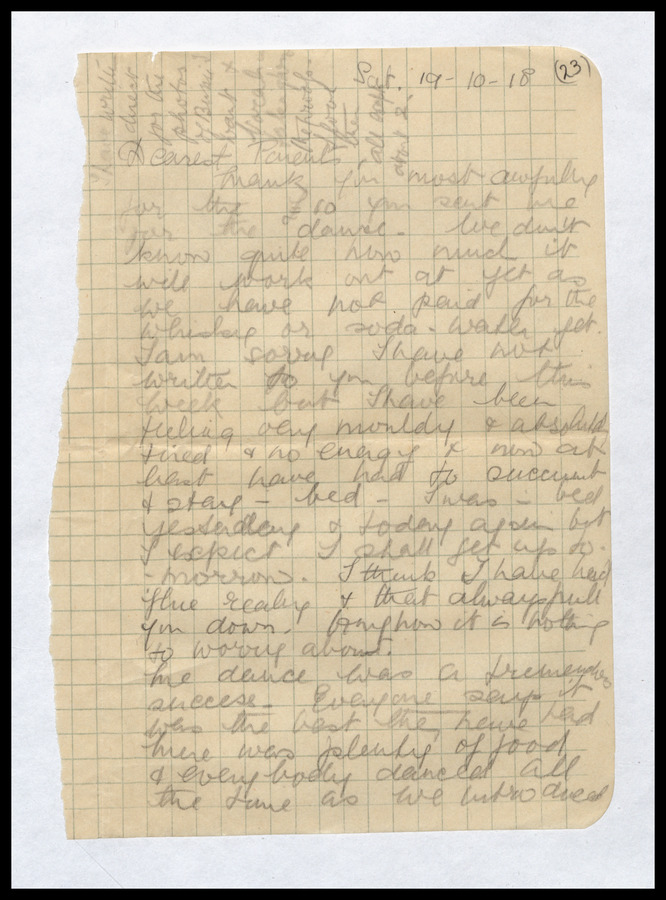 Sat. 19-10-18 (23)
I have written
direct
for the
photos
Dearest Parents
Thank you most awfully
for the you sent me
for the dance. We don't
know quite how much it
will work out at yet as
we have not paid for the
whisky or soda-water yet.
I am sorry I have not
written to you before this
week but I have been
feeling very mouldy & absolutely
tired & no energy & now at
last have had to succumb
& stay - bed - I was - bed
yesterday & today again but
I expect I shall get up to-
-morrow. I think I have had
flue really & that always pull
you down. Anyhow it is nothing
to worry about.
The dance was a tremendous
success - Everyone says it
was the best they have had
There was plenty of food
& everybody danced all
the time as we introduced